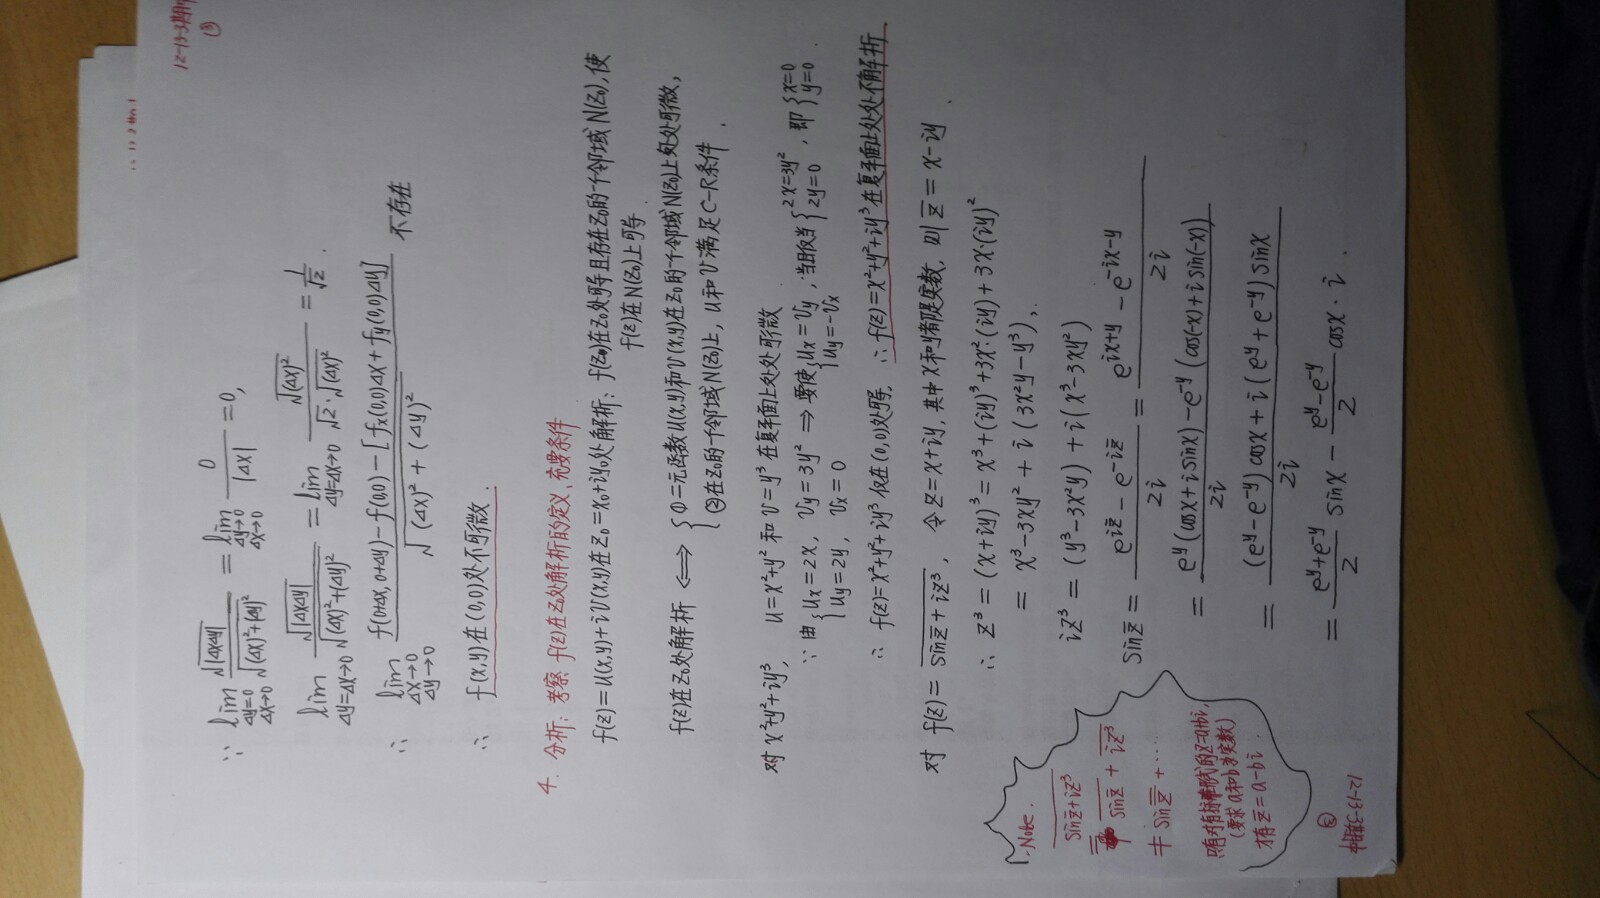 12-13-3期中
③
∵ lim_{Δy=0, Δx→0} √|ΔxΔy| / √((Δx)²+(Δy)²) = lim_{Δy→0, Δx→0} 0/|Δx| = 0,
lim_{Δy=Δx→0} √|ΔxΔy| / √((Δx)²+(Δy)²) = lim_{Δy=Δx→0} √(Δx)² / (√2·√(Δx)²) = 1/√2.
∴ lim_{Δx→0, Δy→0} f(0+Δx, 0+Δy)-f(0,0)-[fx(0,0)Δx+fy(0,0)Δy] / √((Δx)²+(Δy)²) 不存在
∴ f(x,y)在(0,0)处不可微.
4. 分析: 考察 f(z)在z₀处解析的定义、充要条件
f(z)=u(x,y)+iv(x,y)在z₀=x₀+iy₀处解析: f(z)在z₀处可导且存在z₀的一个邻域N(z₀),使
f(z)在N(z₀)上可导.
f(z)在z₀处解析 ⟺ { ①二元函数u(x,y)和v(x,y)在z₀的一个邻域N(z₀)上处处可微,
②在z₀的一个邻域N(z₀)上, u和v满足C-R条件.
对x²+y²+iy³, u=x²+y² 和 v=y³ 在复平面上处处可微
∵ 由 { ux=2x, vy=3y² ⇒ 要使 { ux=vy , 当且仅当 { 2x=3y² , 即 { x=0
uy=2y, vx=0 uy=-vx 2y=0 y=0.
∴ f(z)=x²+y²+iy³ 仅在(0,0)处可导, ∴ f(z)=x²+y²+iy³在复平面上处处不解析
对 f(z)= \overline{sin\overline{z}+iz³}, 令z=x+iy, 其中x和y都是实数, 则 \overline{z}=x-iy
∴ z³=(x+iy)³=x³+(iy)³+3x²·(iy)+3x(iy)²
= x³-3xy²+i(3x²y-y³),
iz³=(y³-3x²y)+i(x³-3xy²)
sin\overline{z} = (e^{i\overline{z}}-e^{-i\overline{z}})/2i = (e^{ix+y}-e^{-ix-y})/2i
= [e^y(cosx+isinx)-e^{-y}(cos(-x)+isin(-x))]/2i
= [(e^y-e^{-y})cosx+i(e^y+e^{-y})sinx]/2i
= (e^y+e^{-y})/2 sinx - (e^y-e^{-y})/2 cosx·i.
Note:
\overline{sin\overline{z}+iz³}
= \overline{sin\overline{z}}+\overline{iz³}
≠ sin\overline{\overline{z}}+…
只有对有标准形式的z=a+bi,
(要求a和b为实数)
才有\overline{z}=a-bi.
③
12-13-3期中